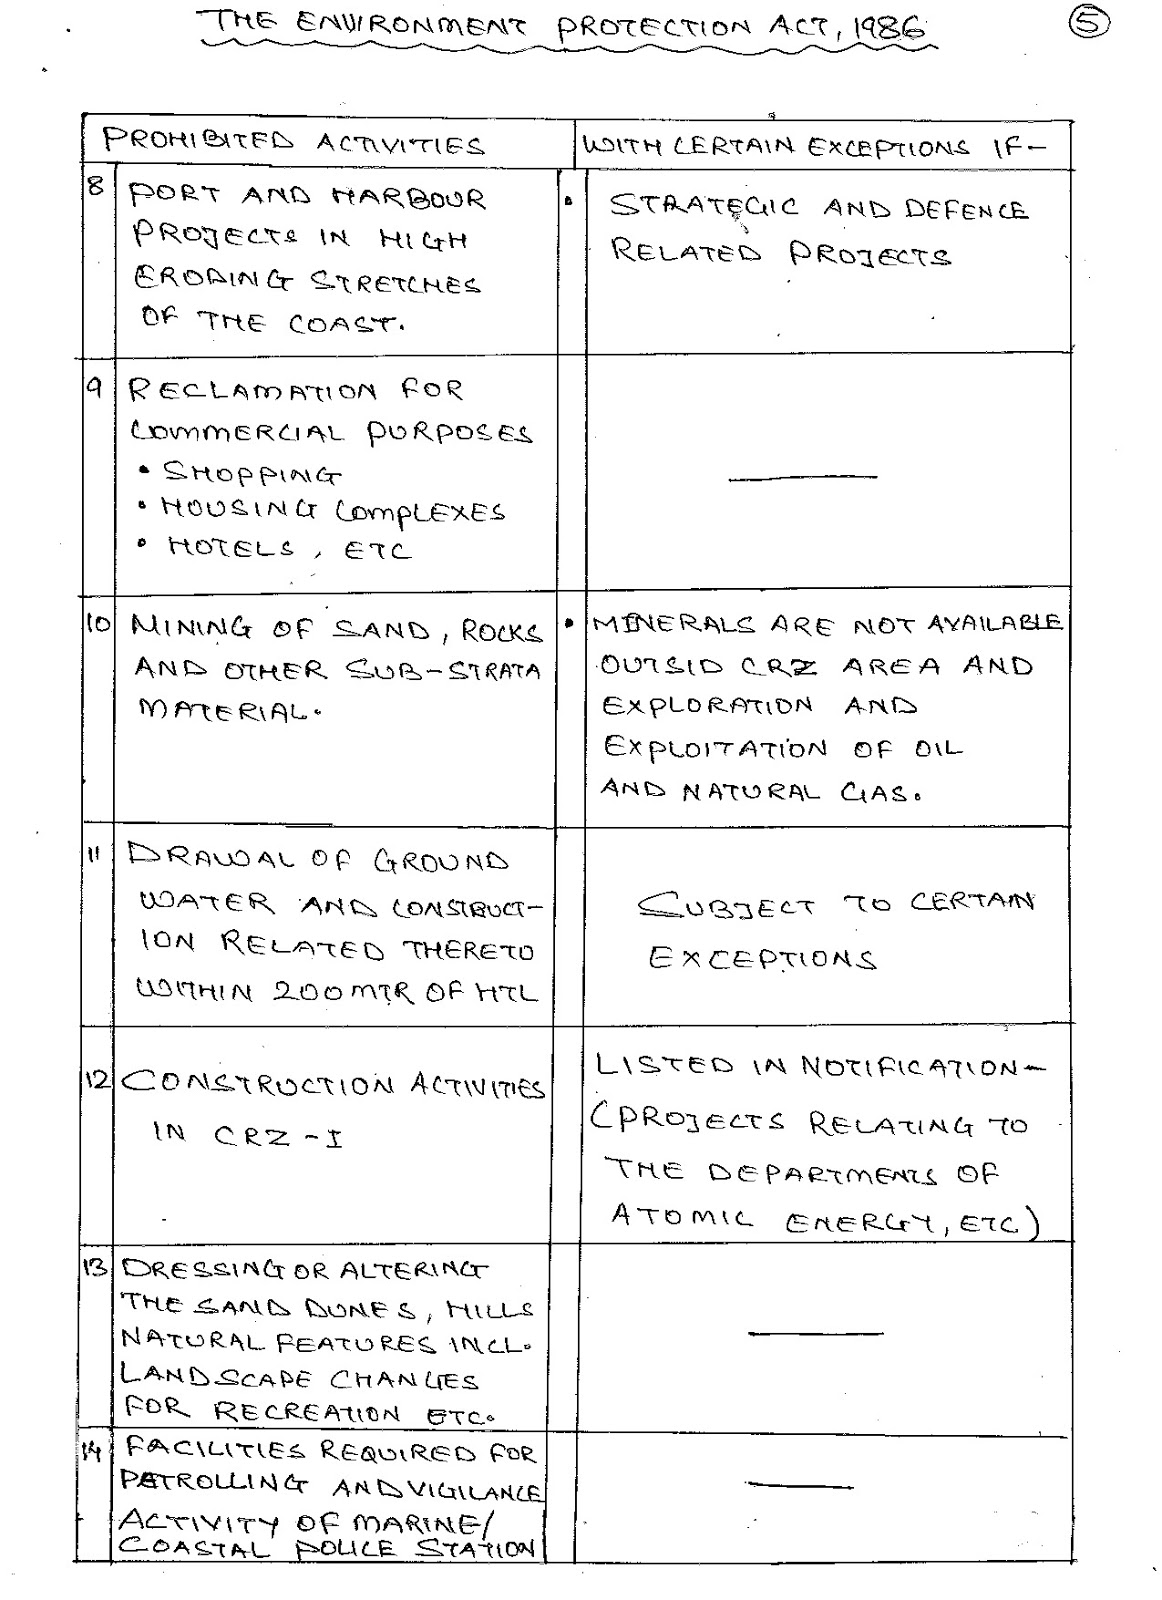 THE ENVIRONMENT PROTECTION ACT, 1986
5
PROHIBITED ACTIVITIES
WITH CERTAIN EXCEPTIONS IF-
8
PORT AND HARBOUR
PROJECTS IN HIGH
ERODING STRETCHES
OF THE COAST.
• STRATEGIC AND DEFENCE
RELATED PROJECTS
9
RECLAMATION FOR
COMMERCIAL PURPOSES
• SHOPPING
• HOUSING COMPLEXES
• HOTELS, ETC
10
MINING OF SAND, ROCKS
AND OTHER SUB-STRATA
MATERIAL.
• MINERALS ARE NOT AVAILABLE
OUTSID CRZ AREA AND
EXPLORATION AND
EXPLOITATION OF OIL
AND NATURAL GAS.
11
DRAWAL OF GROUND
WATER AND CONSTRUCT-
ION RELATED THERETO
WITHIN 200MTR OF HTL
SUBJECT TO CERTAIN
EXCEPTIONS
12
CONSTRUCTION ACTIVITIES
IN CRZ-I
LISTED IN NOTIFICATION-
(PROJECTS RELATING TO
THE DEPARTMENTS OF
ATOMIC ENERGY, ETC)
13
DRESSING OR ALTERING
THE SAND DUNES, HILLS
NATURAL FEATURES INCL.
LANDSCAPE CHANGES
FOR RECREATION ETC.
14
FACILITIES REQUIRED FOR
PATROLLING AND VIGILANCE
ACTIVITY OF MARINE/
COASTAL POLICE STATION